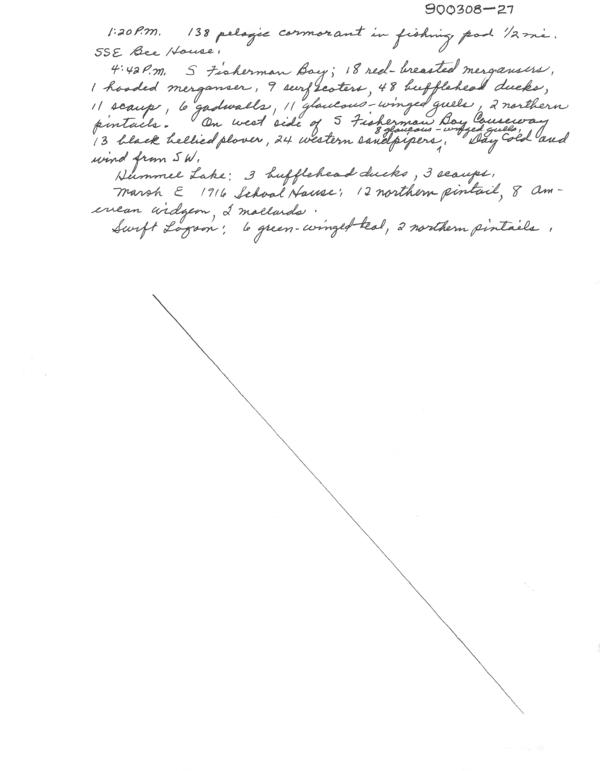 900308-27
1:20 P.M. 138 pelagic cormorant in fishing pod 1/2 mi.
SSE Bee House.
4:42 P.M. S Fisherman Bay; 18 red-breasted mergansers,
1 hooded merganser, 9 surf scoters, 48 bufflehead ducks,
11 scaup, 6 gadwalls, 11 glaucous-winged gulls, 2 northern
pintails. On west side of S Fisherman Bay Causeway
13 black bellied plover, 24 western sandpipers, ^ 8 glaucous-winged gulls, Day Cold and
wind from SW.
Hummel Lake: 3 bufflehead ducks, 3 scaups.
Marsh E 1716 School House: 12 northern pintail, 8 Am-
erican widgeon, 2 mallards.
Swift Lagoon: 6 green-winged teal, 2 northern pintails.